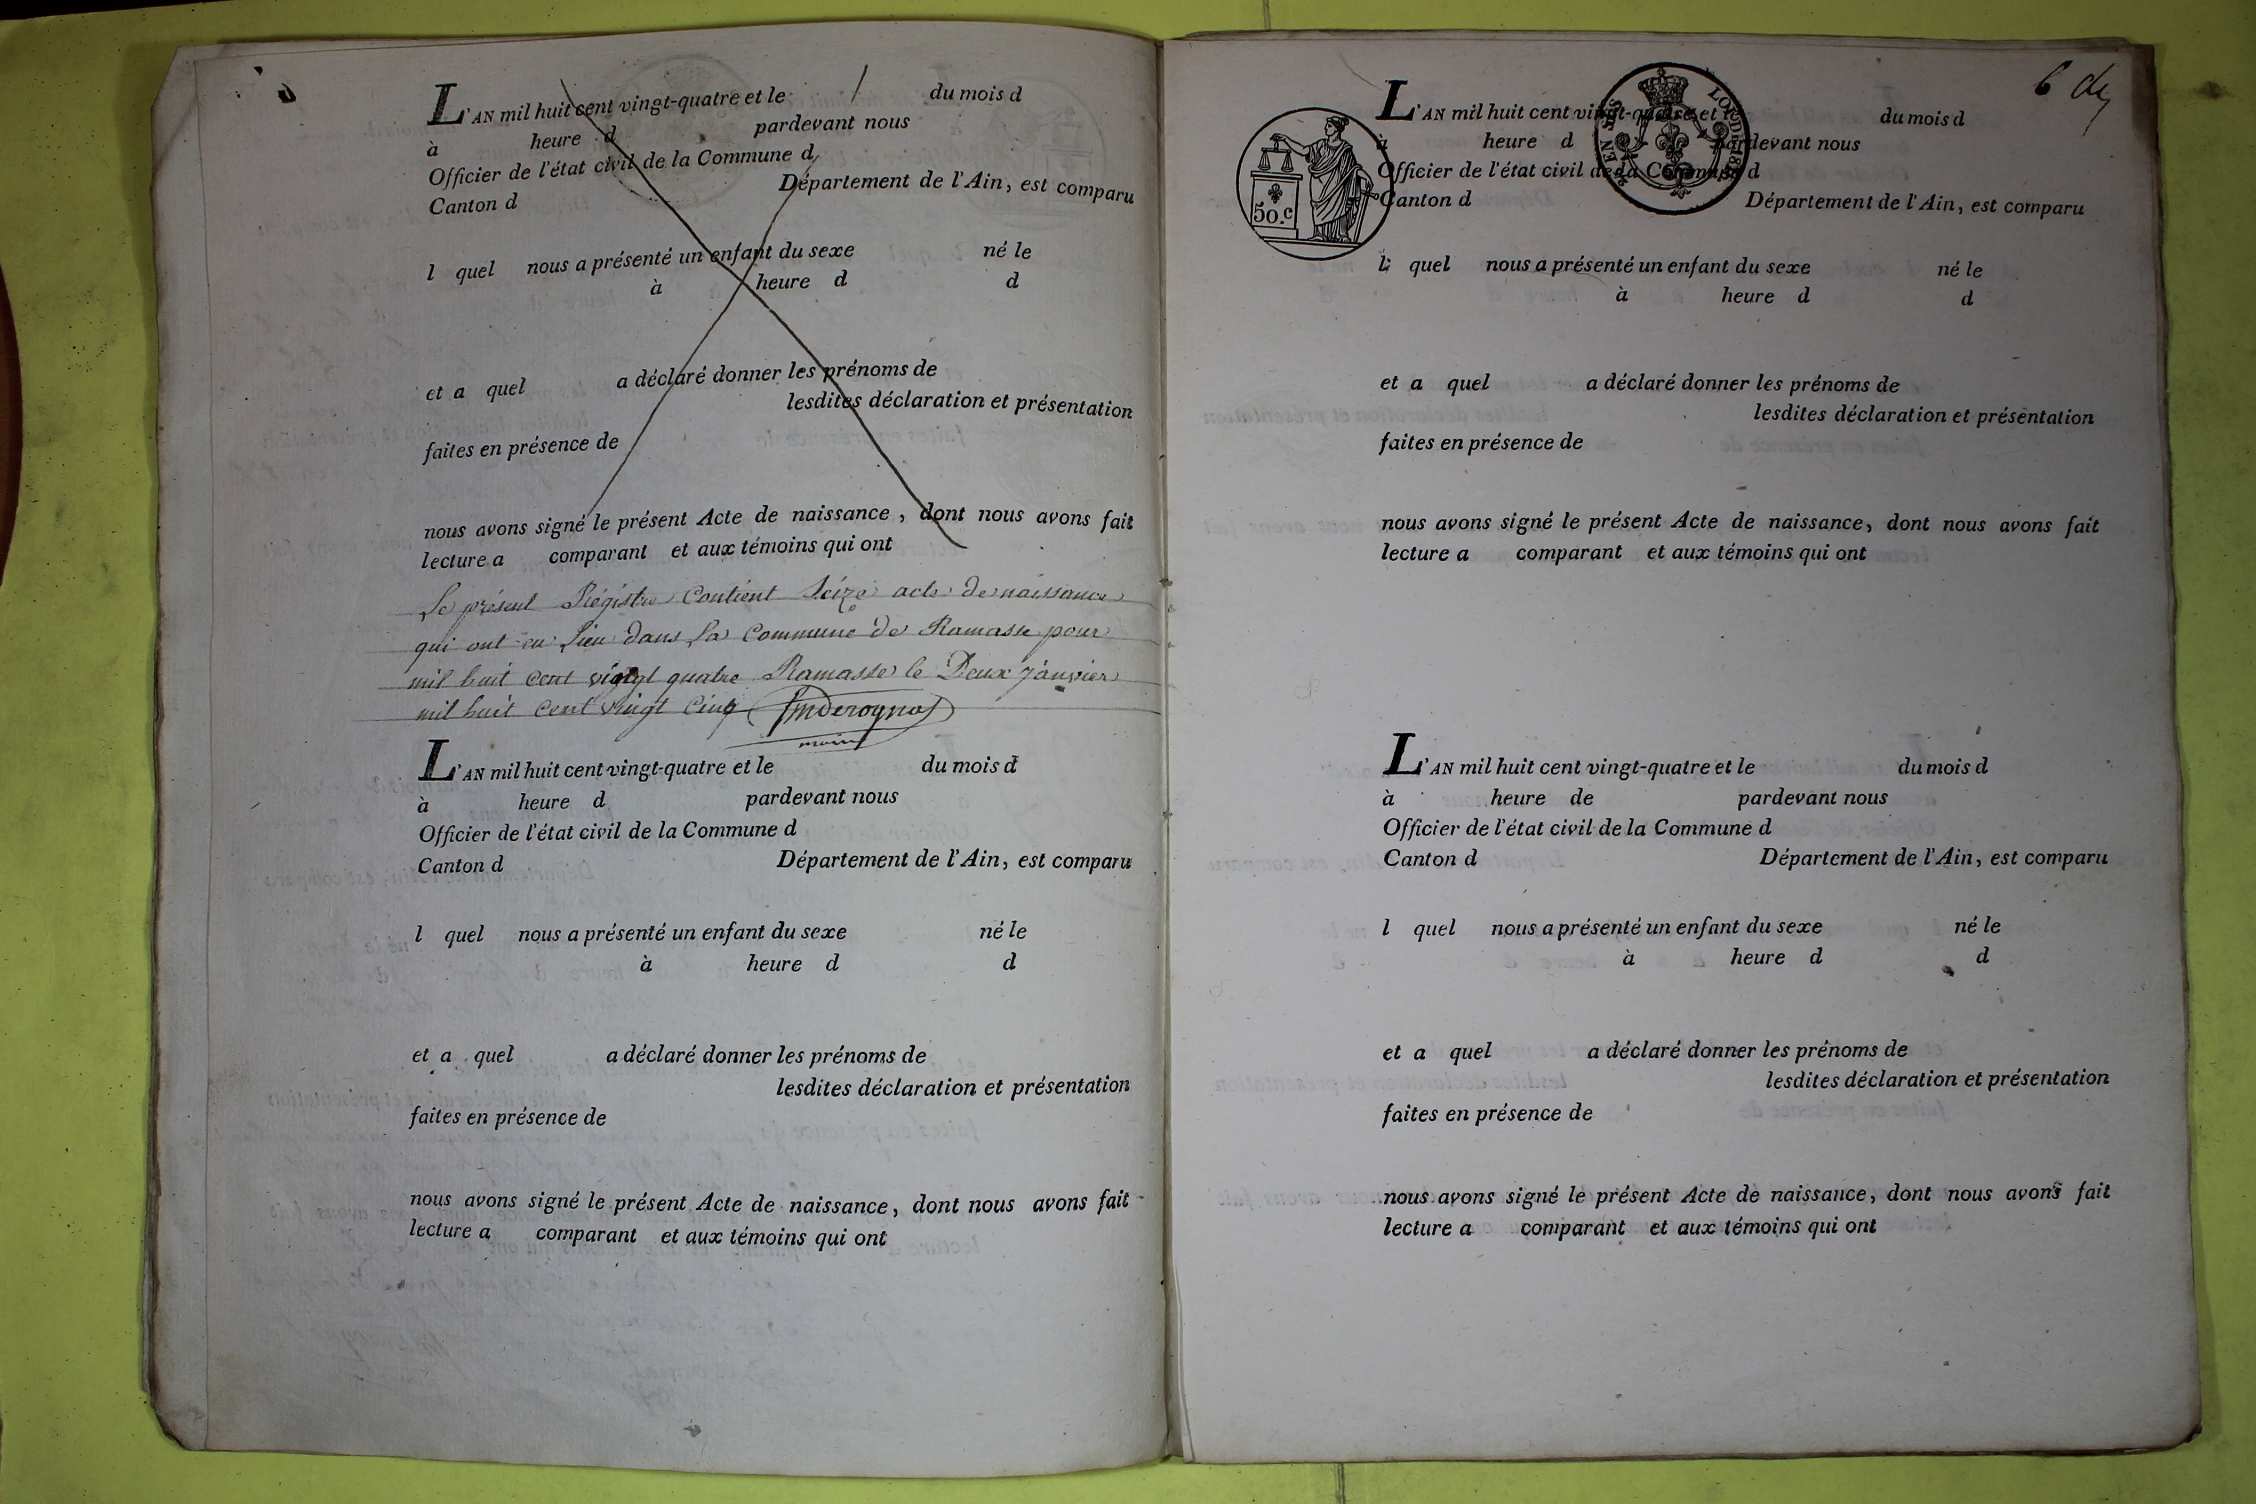 L'AN mil huit cent vingt-quatre et le du mois d
à heure d pardevant nous
Officier de l'état civil de la Commune d
Canton d Département de l'Ain, est comparu
l quel nous a présenté un enfant du sexe né le
à heure d d
et a quel a déclaré donner les prénoms de
lesdites déclaration et présentation
faites en présence de
nous avons signé le présent Acte de naissance, dont nous avons fait
lecture a comparant et aux témoins qui ont
Le présent Régistre Contient Seize acte de naissance
qui ont eu Lieu dans La Commune de Ramasse pour
mil huit cent vigngt quatre Ramasse le Deux Janvier
mil huit Cent vingt Cinq
L'AN mil huit cent vingt-quatre et le du mois d
à heure d pardevant nous
Officier de l'état civil de la Commune d
Canton d Département de l'Ain, est comparu
l quel nous a présenté un enfant du sexe né le
à heure d d
et a quel a déclaré donner les prénoms de
lesdites déclaration et présentation
faites en présence de
nous avons signé le présent Acte de naissance, dont nous avons fait
lecture a comparant et aux témoins qui ont
6
50.c
L'AN mil huit cent vingt-quatre et le du mois d
à heure d pardevant nous
Officier de l'état civil de la Commune d
Canton d Département de l'Ain, est comparu
l quel nous a présenté un enfant du sexe né le
à heure d d
et a quel a déclaré donner les prénoms de
lesdites déclaration et présentation
faites en présence de
nous avons signé le présent Acte de naissance, dont nous avons fait
lecture a comparant et aux témoins qui ont
L'AN mil huit cent vingt-quatre et le du mois d
à heure de pardevant nous
Officier de l'état civil de la Commune d
Canton d Département de l'Ain, est comparu
l quel nous a présenté un enfant du sexe né le
à heure d d
et a quel a déclaré donner les prénoms de
lesdites déclaration et présentation
faites en présence de
nous avons signé le présent Acte de naissance, dont nous avons fait
lecture a comparant et aux témoins qui ont